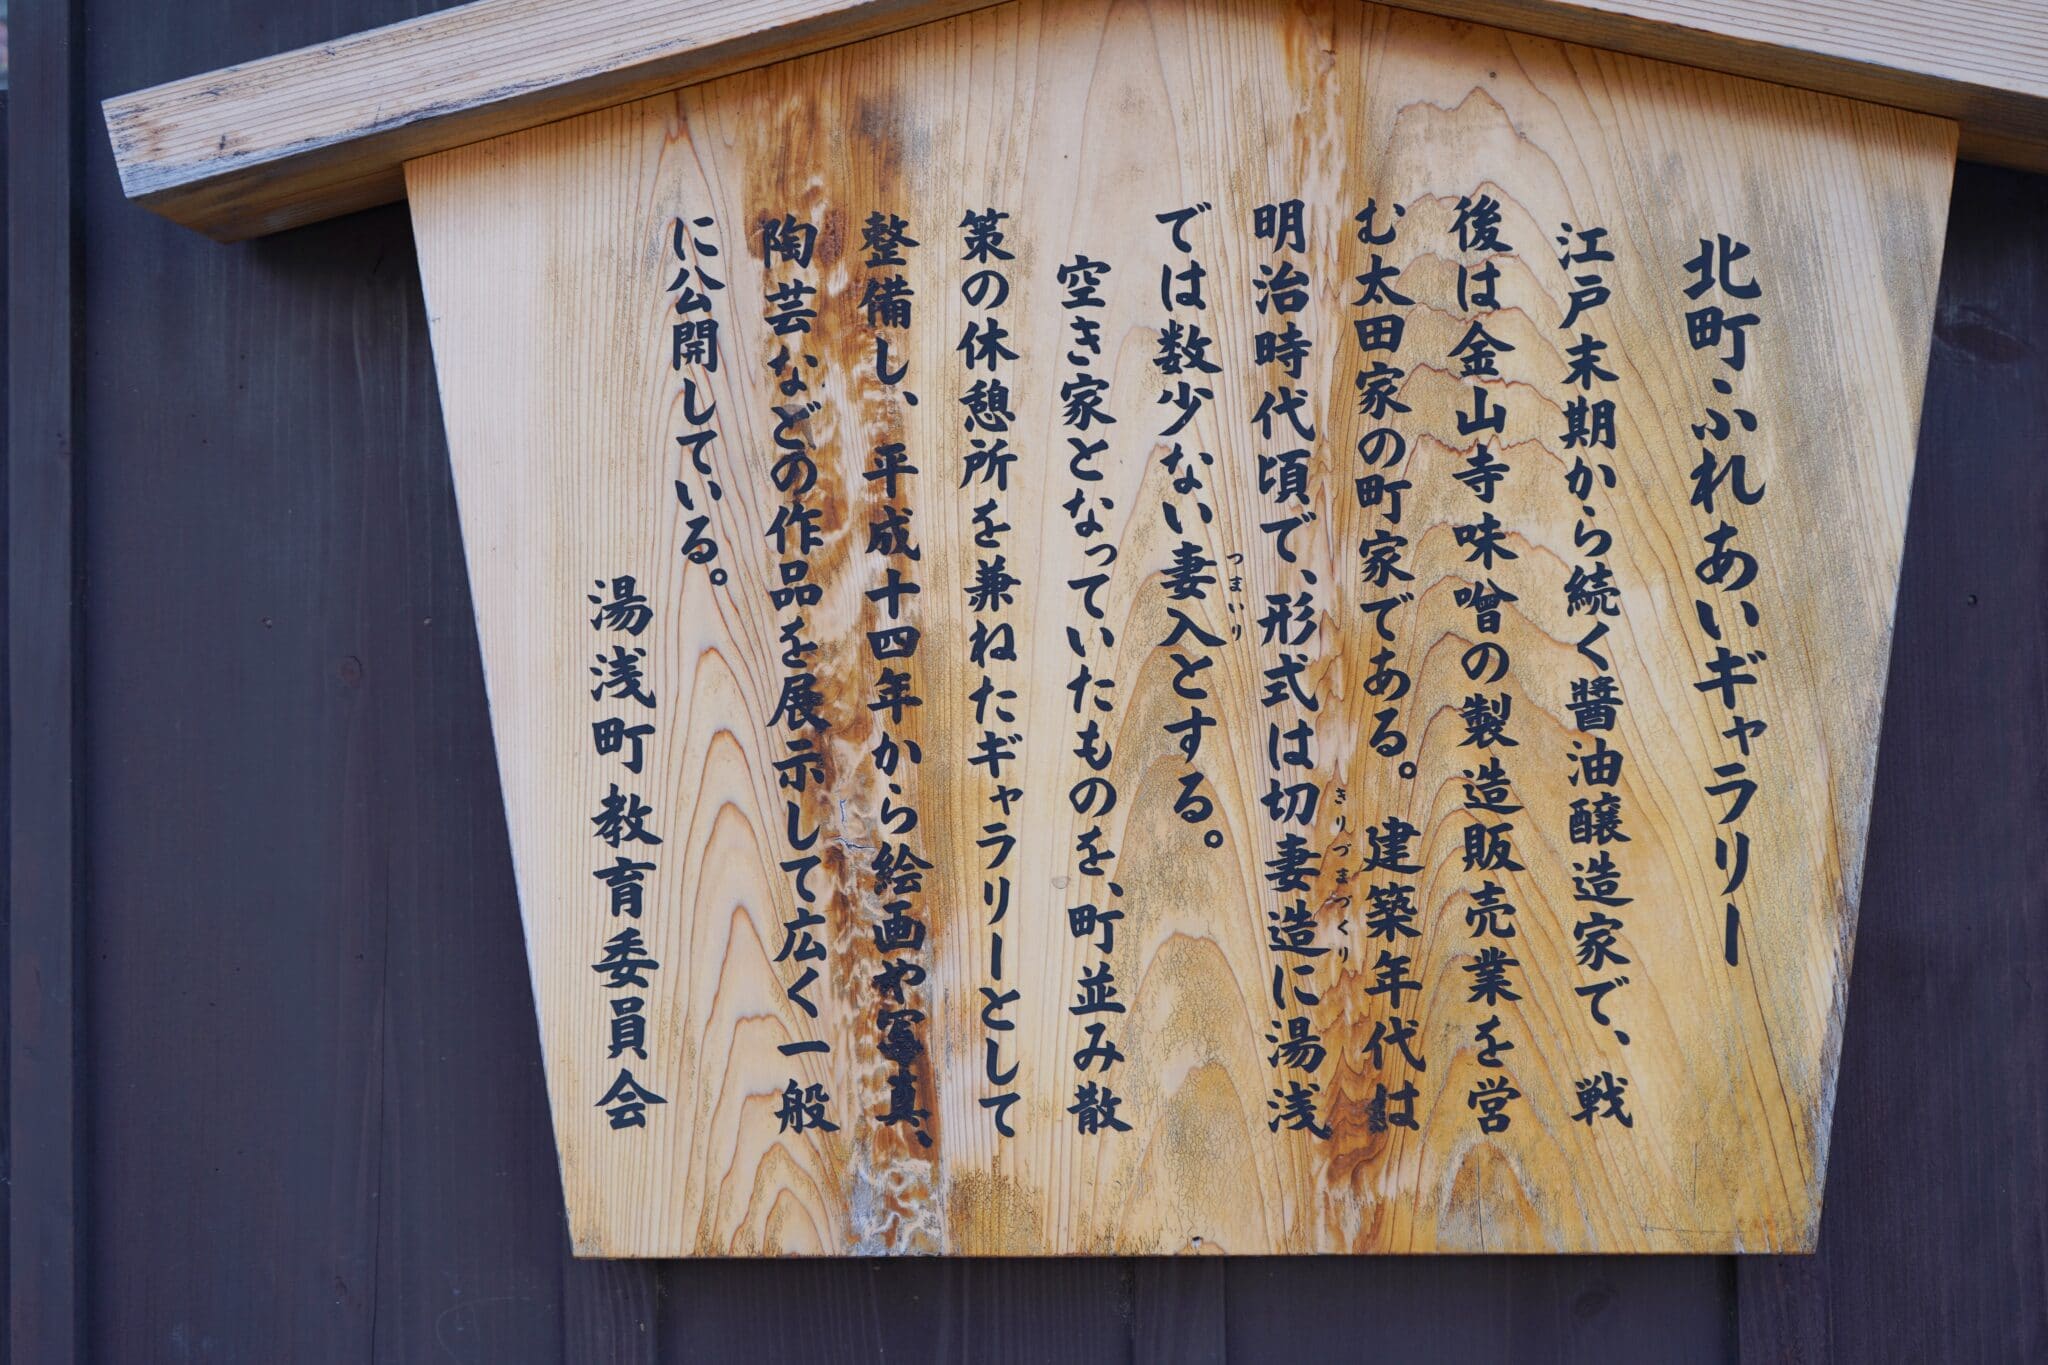 北町ふれあいギャラリー
江戸末期から続く醤油醸造家で、戦
後は金山寺味噌の製造販売業を営
む太田家の町家である。建築年代は
明治時代頃で、形式は切妻造に湯浅
きりづまづくり
では数少ない妻入とする。
つまいり
空き家となっていたものを、町並み散
策の休憩所を兼ねたギャラリーとして
整備し、平成十四年から絵画や写真、
陶芸などの作品を展示して広く一般
に公開している。
湯浅町教育委員会